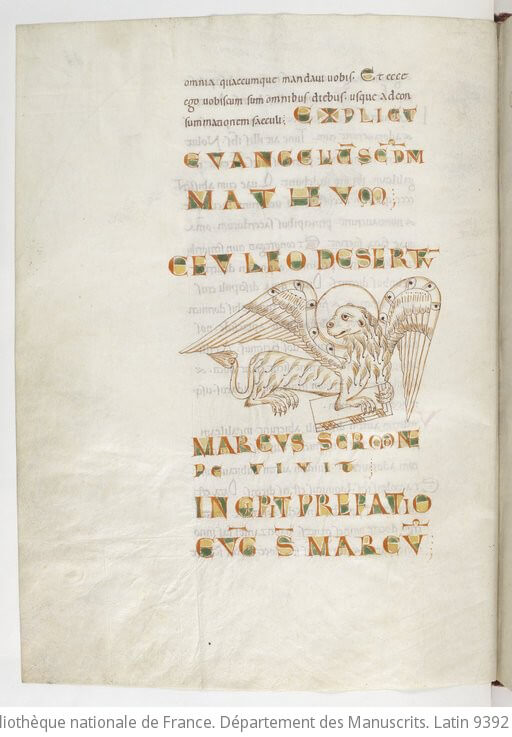 omnia quaecumque mandavi vobis. Et ecce
ego vobiscum sum omnibus diebus. usque ad con
summationem saeculi; EXPLICIT
EVANGELIŪ SECDM
MATHEUM;
CEU LEO DESERTŪ
MARCUS SERMONE
PERVIVIT;
INCIPIT PREFATIO
EUG S MARCŪ;
liothèque nationale de France. Département des Manuscrits. Latin 9392